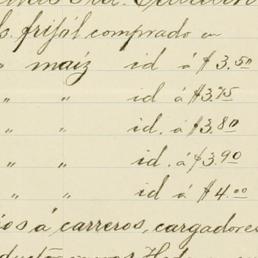 s. frijól comprado a
" maíz id á $3.50
" " id á $3.75
" " id. á $3.80
" " id. á $3.90
" " id á $4.00
á, carreros, cargadores